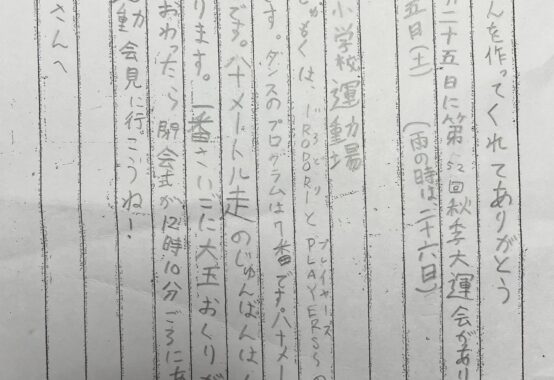 んを作ってくれてありがとう
二十五日に第52回秋季大運会があり
五日(土) (雨の時は、二十六日)
小学校運動場
いろどり プレイヤーズ
もくは、IRODORIとPLAYERSSの
す。ダンスのプログラムは7番です。八十メー
です。八十メートル走のじゅんばんは
ります。一番さいごに大玉おくりが
おわったら閉会式が12時10分ごろにあ
動会見に行こうね!
さんへ